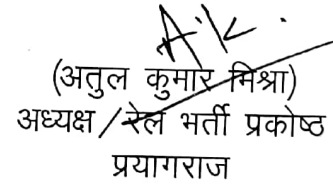 (अतुल कुमार मिश्रा)
अध्यक्ष/रेल भर्ती प्रकोष्ठ
प्रयागराज